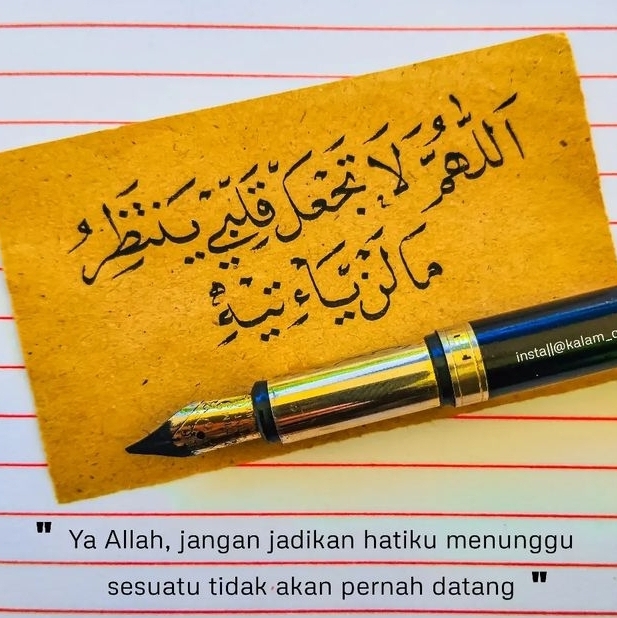 اَللّٰهُمَّ لَا تَجْعَلْ قَلْبِيْ يَنْتَظِرُ
مَا لَنْ يَّاءْتِيَهُ
insta||@kalam_
" Ya Allah, jangan jadikan hatiku menunggu
sesuatu tidak akan pernah datang "